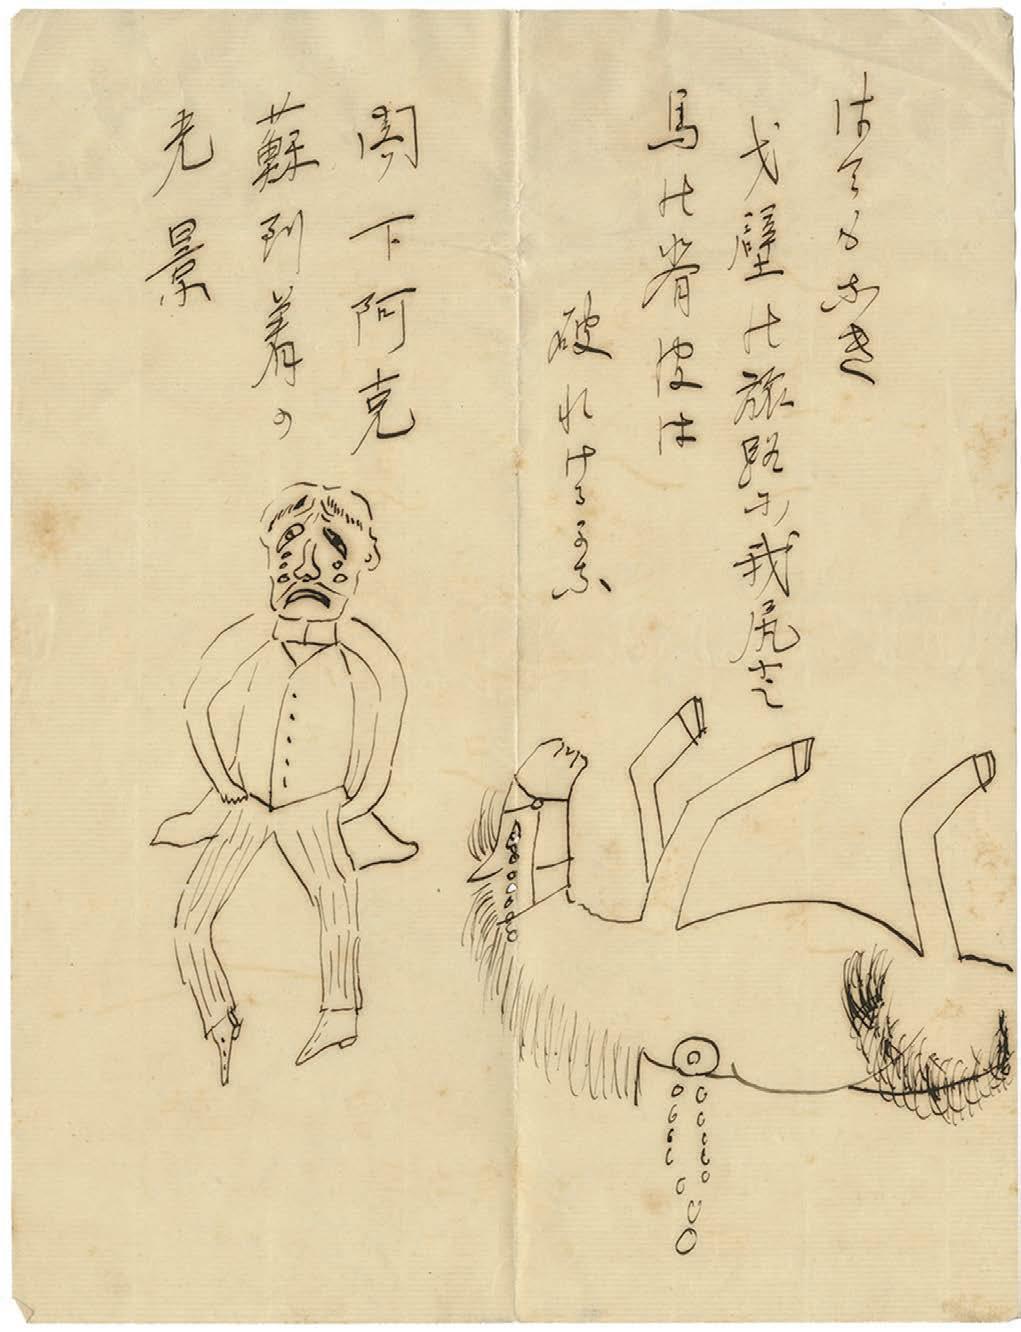 はてもなき
戈壁の旅路に我尻と
馬の背皮は
破れけるかな
閣下阿克
蘇到着の
光景